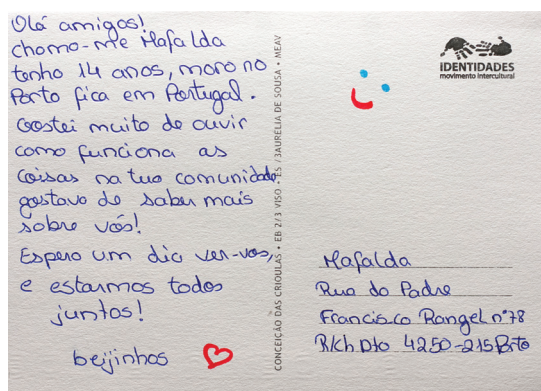 Olá amigos!
chamo-me Mafalda
tenho 14 anos, moro no
Porto fica em Portugal.
Gostei muito de ouvir
como funciona as
coisas na tua comunidade,
gostava de saber mais
sobre vós!
Espero um dia ver-vos,
e estarmos todos
juntos!
beijinhos
CONCEIÇÃO DAS CRIOULAS • EB 2/3 VISO • ES /3AURÉLIA DE SOUSA • MEAV
IDENTIDADES
movimento intercultural
Mafalda
Rua do Padre
Francisco Rangel nº78
R/ch Dto 4250-215 Porto